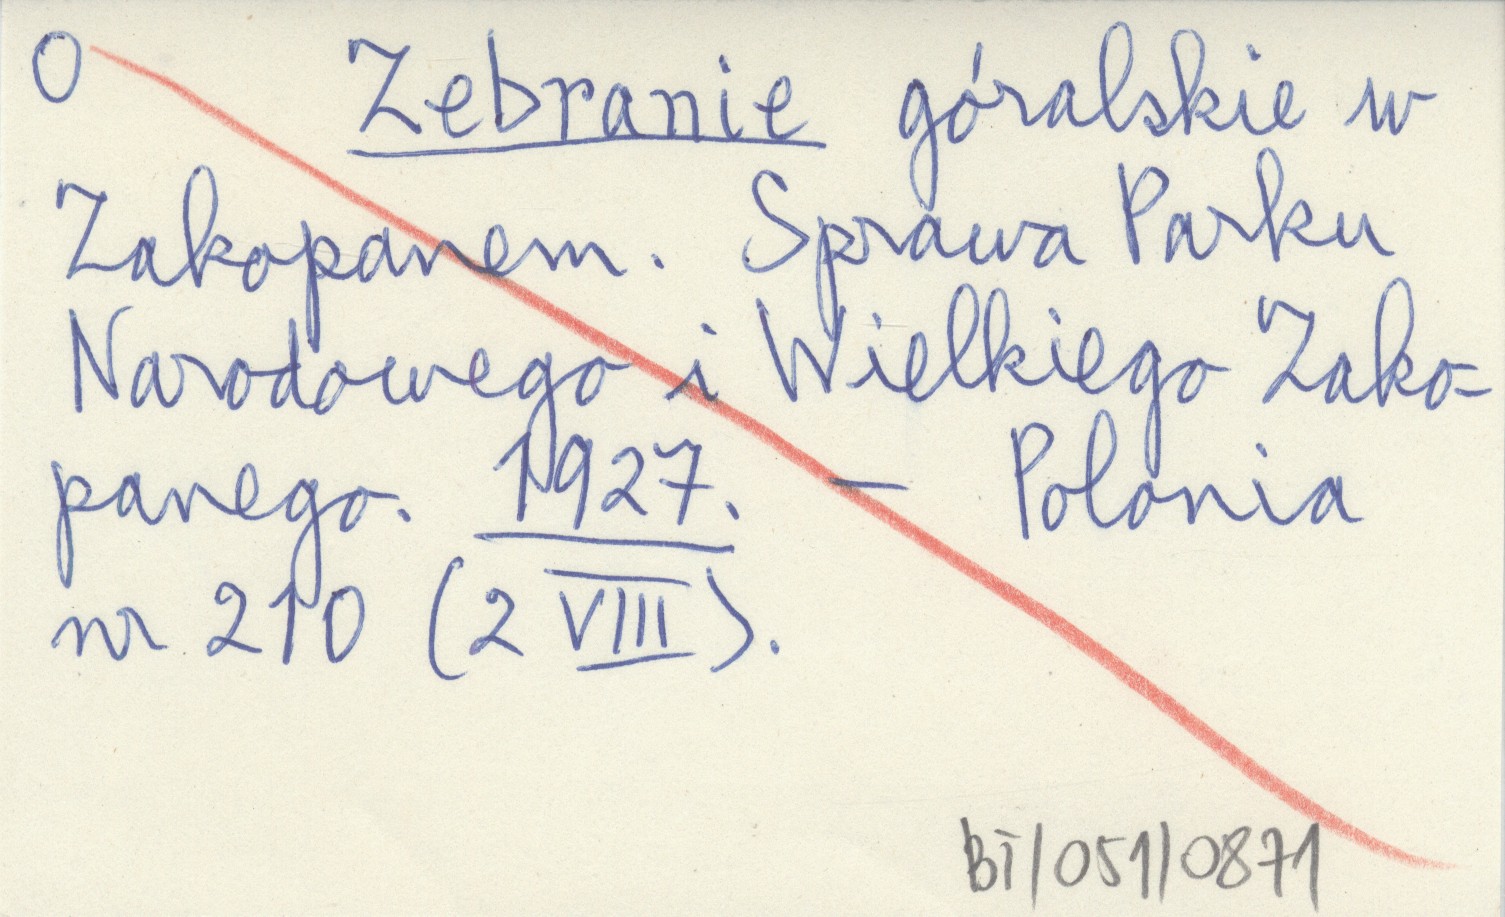 O Zebranie góralskie w
Zakopanem. Sprawa Parku
Narodowego i Wielkiego Zako=
panego. 1927. — Polonia
nr 210 (2 VIII).
BT/051/0871